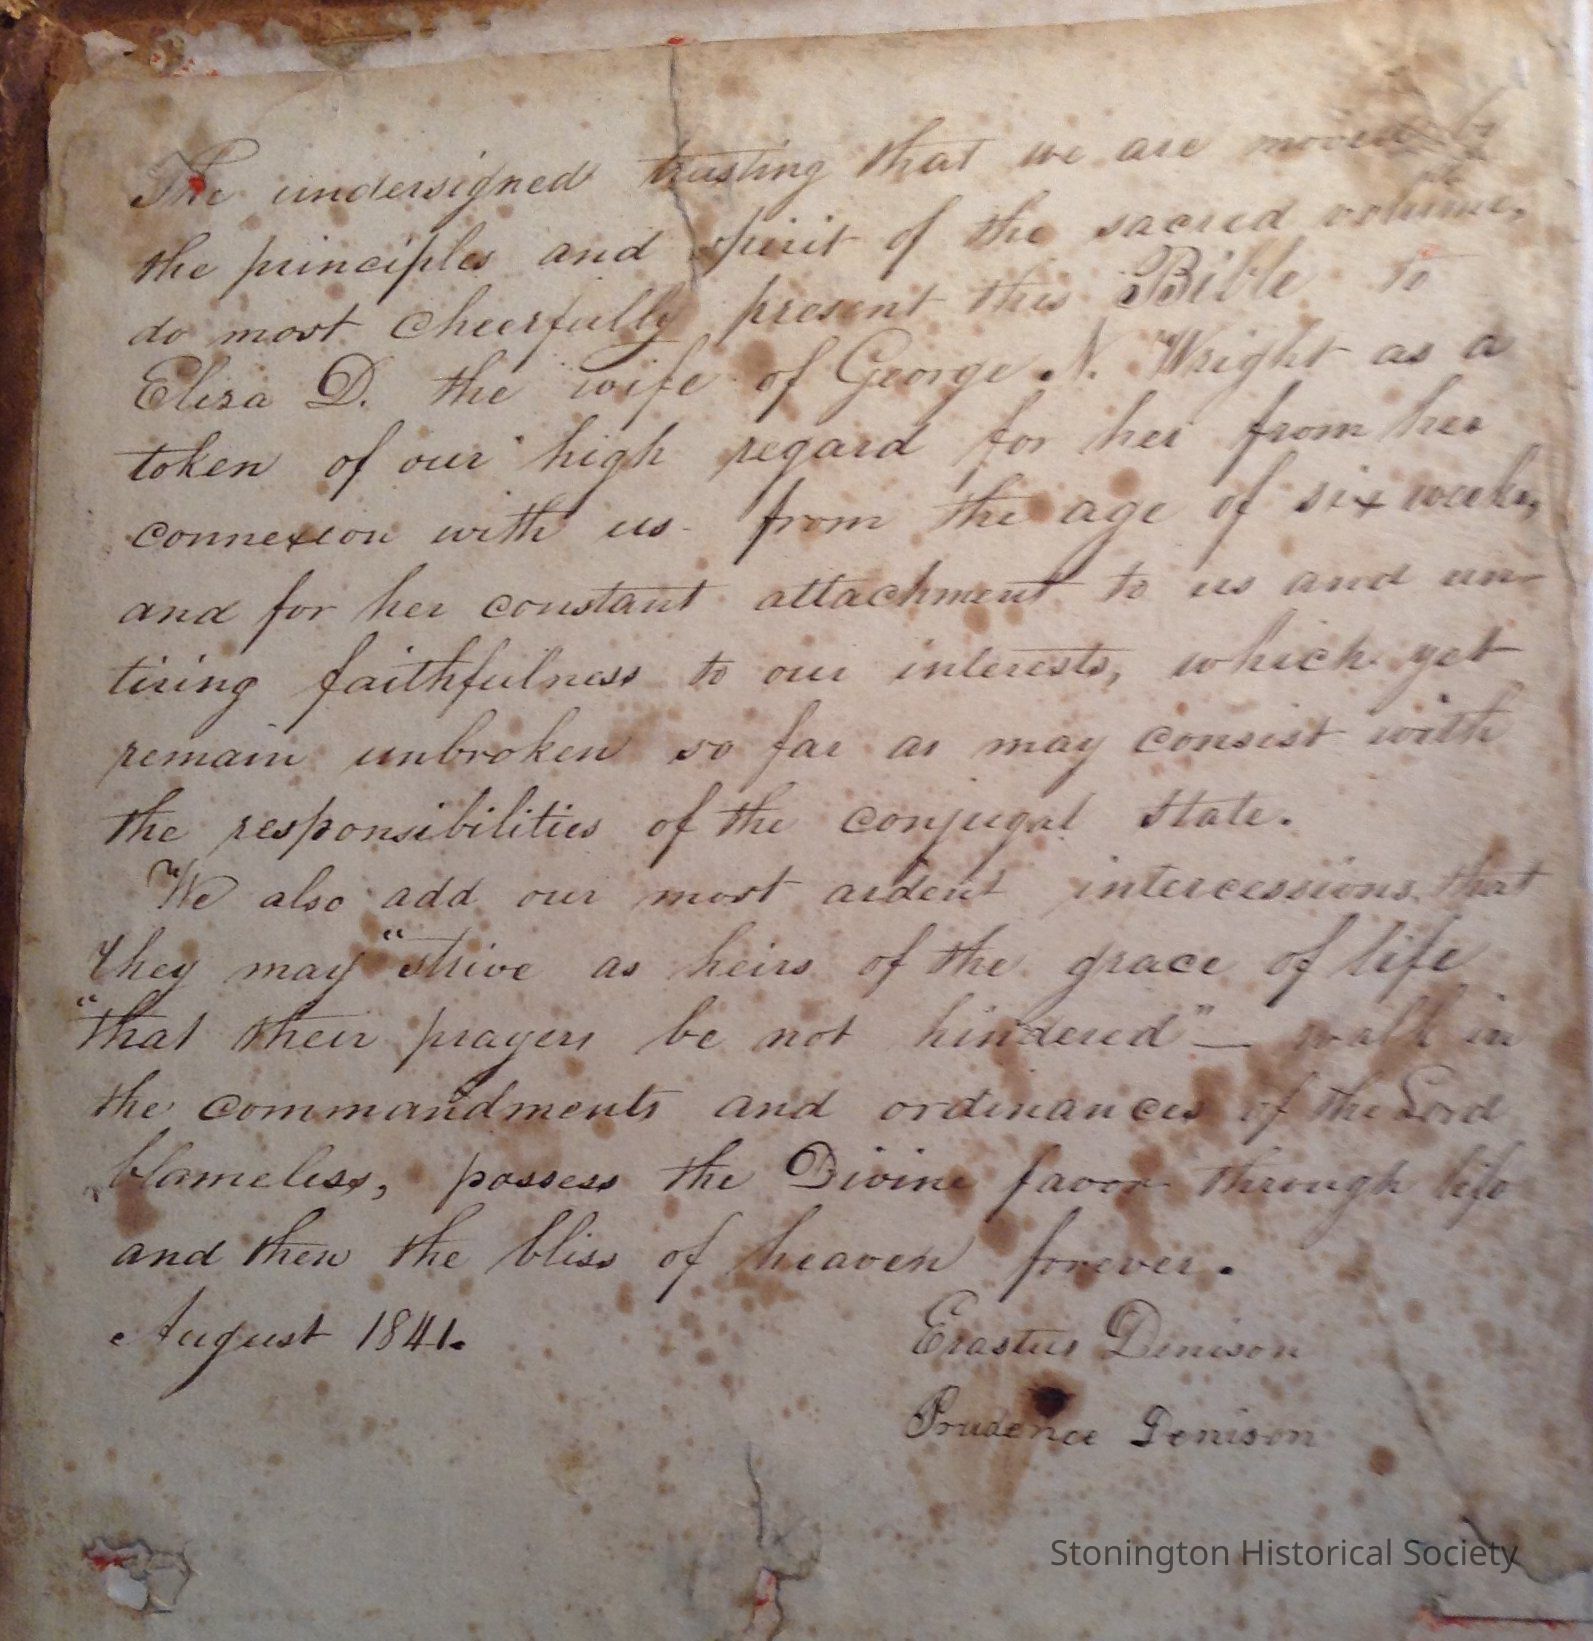 The undersigned trusting that we are moved by
the principles and spirit of the sacred volume,
do most cheerfully present this Bible to
Eliza D. the wife of George N. Wright as a
token of our high regard for her from her
connexion with us from the age of six weeks,
and for her constant attachment to us and un-
tiring faithfulness to our interests, which yet
remain unbroken so far as may consist with
the responsibilities of the conjugal state.
We also add our most ardent intercessions that
they may "strive as heirs of the grace of life
"that their prayers be not hindered" — walk in
the commandments and ordinances of the Lord
blameless, possess the Divine favor through life
and then the bliss of heaven forever.
August 1841.
Erastus Denison
Prudence Denison
Stonington Historical Society